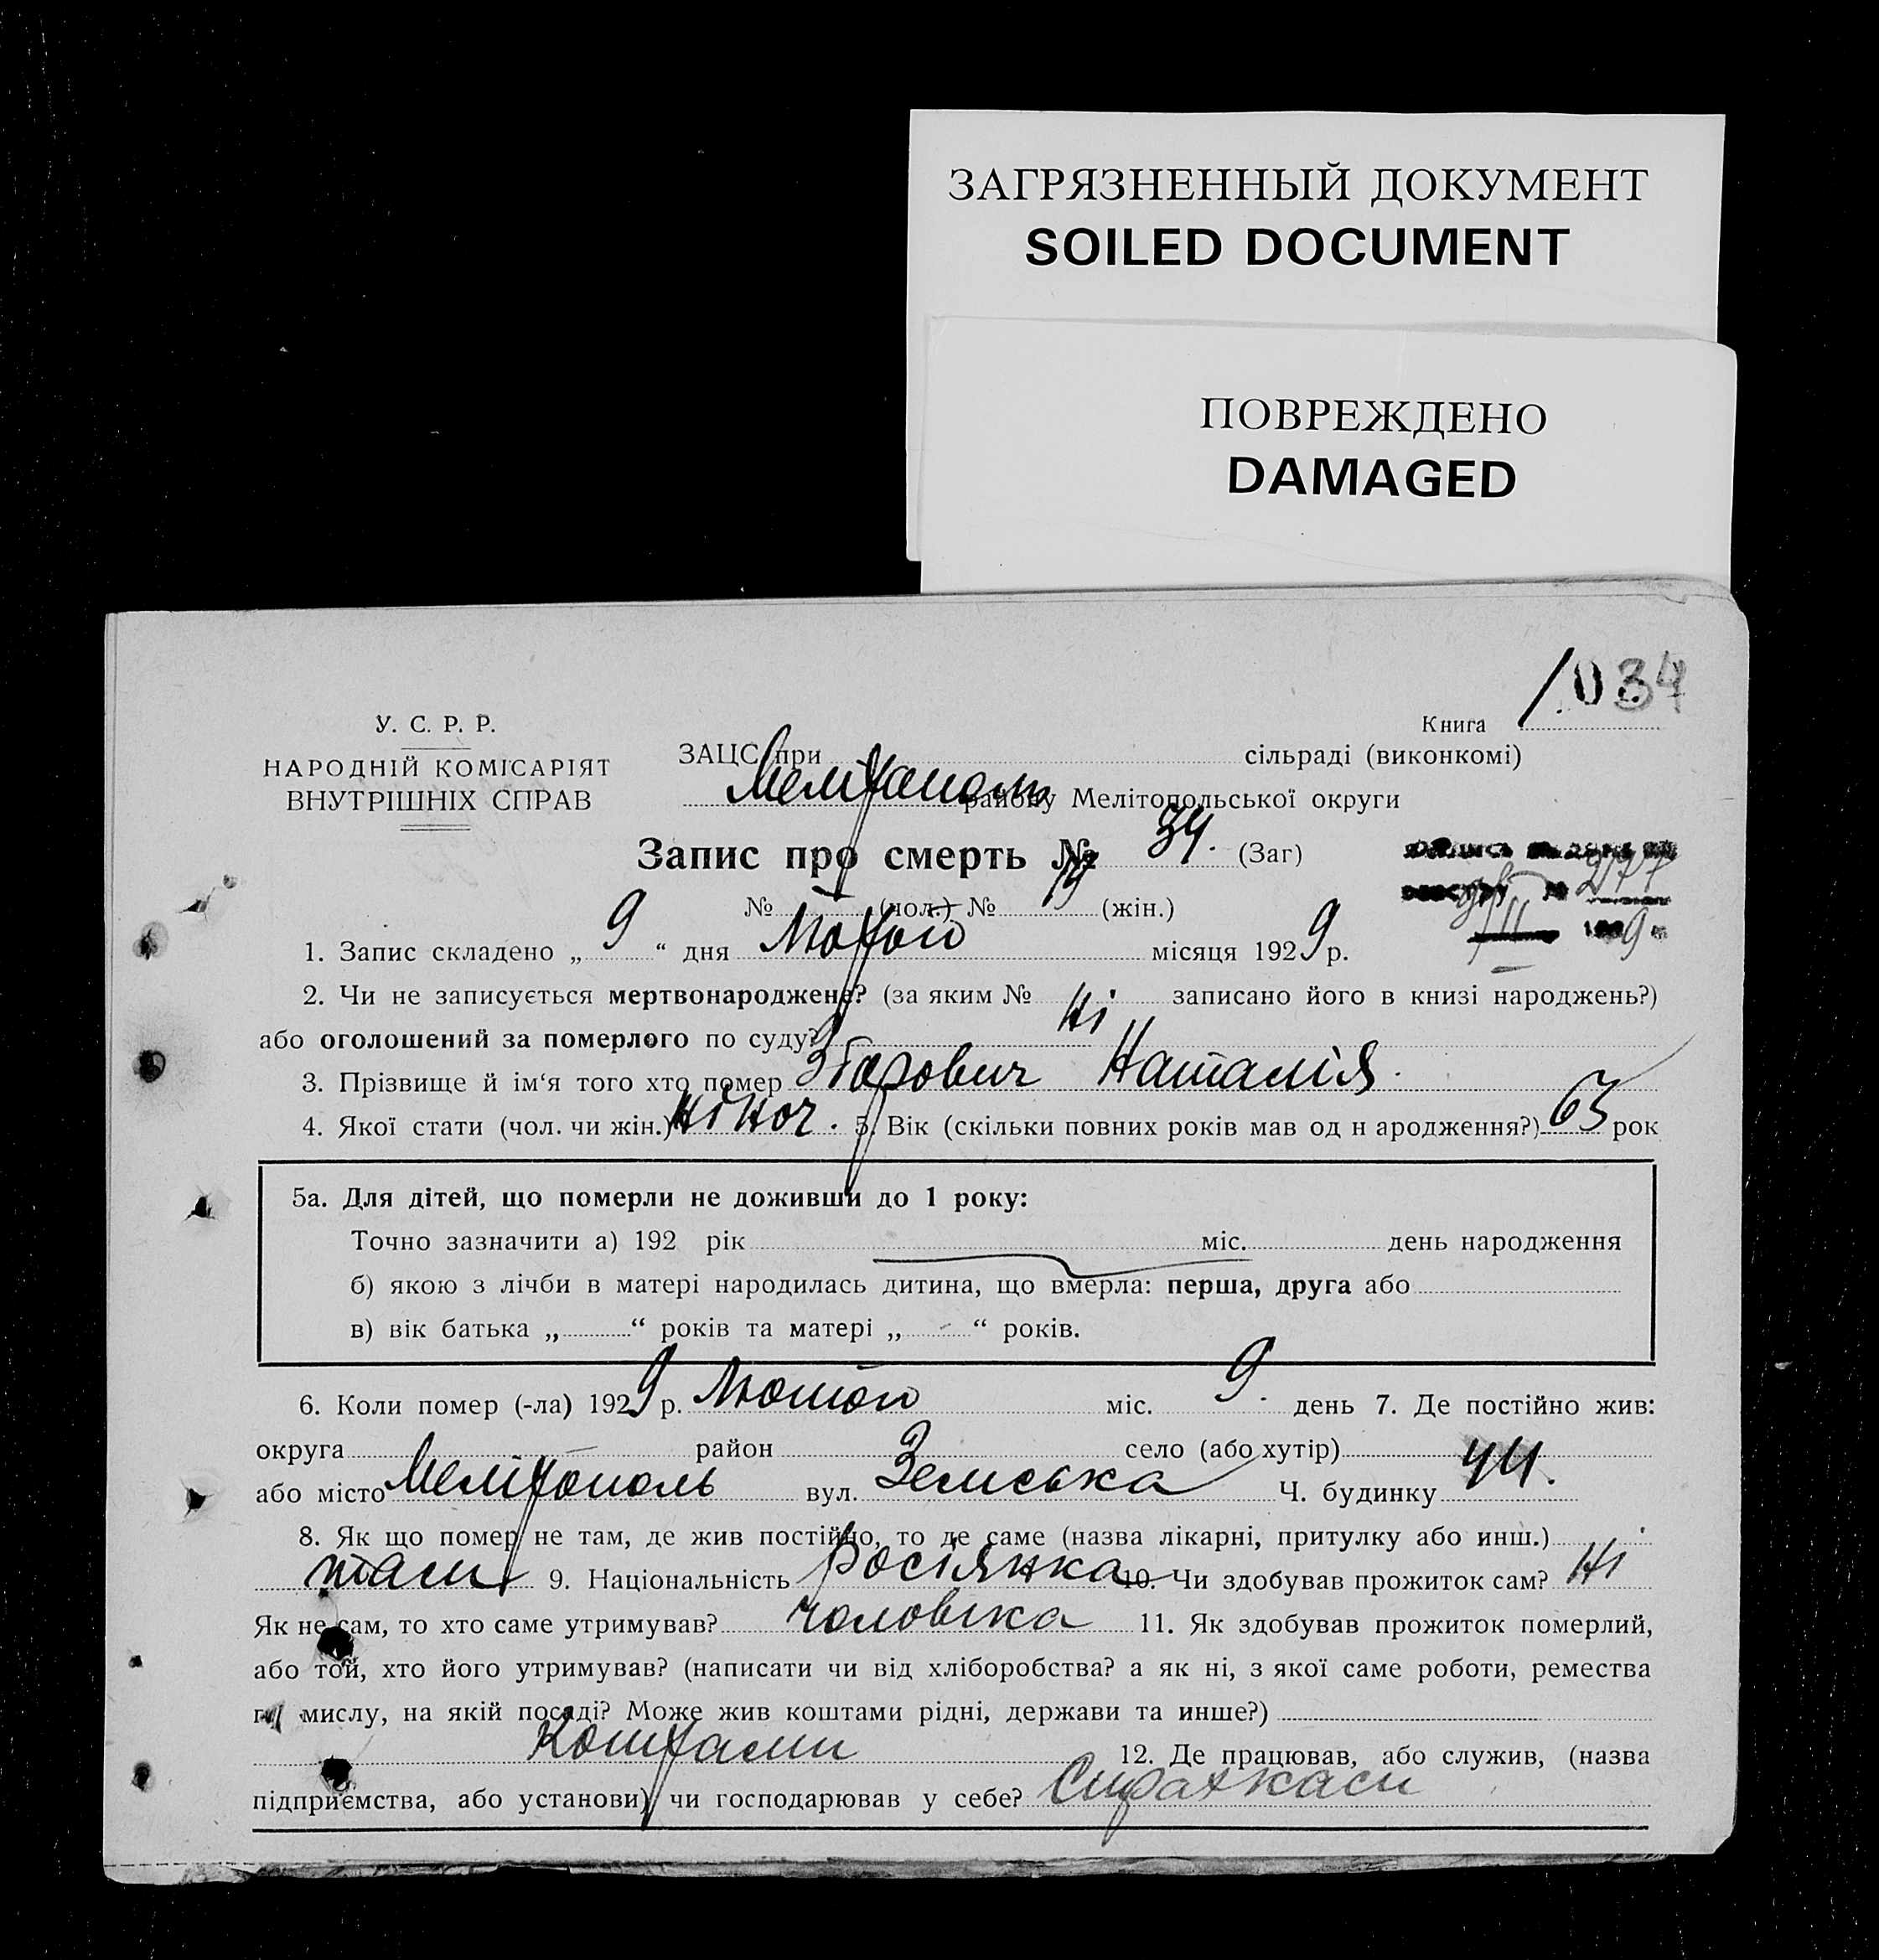 ЗАГРЯЗНЕННЫЙ ДОКУМЕНТ
SOILED DOCUMENT
ПОВРЕЖДЕНО
DAMAGED
34
У. С. Р. Р.
НАРОДНІЙ КОМІСАРІЯТ
ВНУТРІШНІХ СПРАВ
Книга
ЗАЦС при сільраді (виконкомі)
району Мелітопольської округи
Запис про смерть № 34. (Заг)
№ (чол.) № (жін.)
277
1. Запис складено „ 9 “ дня Лютого місяця 1929 р.
2. Чи не записується мертвонароджене? (за яким № записано його в книзі народжень?)
або оголошений за померлого по суду? Ні
3. Прізвище й ім‘я того хто помер Наталія
4. Якої стати (чол. чи жін.) жіноч. 5. Вік (скільки повних років мав од н ародження?) 63 рок
5а. Для дітей, що померли не доживши до 1 року:
Точно зазначити а) 192 рік міс. день народження
б) якою з лічби в матері народилась дитина, що вмерла: перша, друга або
в) вік батька „ “ років та матері „ “ років.
6. Коли помер (-ла) 1929 р. Лютого міс. 9. день 7. Де постійно жив:
округа район село (або хутір)
або місто Мелітополь вул. Земська Ч. будинку 44.
8. Як що помер не там, де жив постійно, то де саме (назва лікарні, притулку або инш.)
там 9. Національність Росіянка 10. Чи здобував прожиток сам? Ні
Як не сам, то хто саме утримував? чоловіка 11. Як здобував прожиток померлий,
або той, хто його утримував? (написати чи від хліборобства? а як ні, з якої саме роботи, ремества
мислу, на якій посаді? Може жив коштами рідні, держави та инше?)
Коштами 12. Де працював, або служив, (назва
підприємства, або установи) чи господарював у себе? Страхкаси